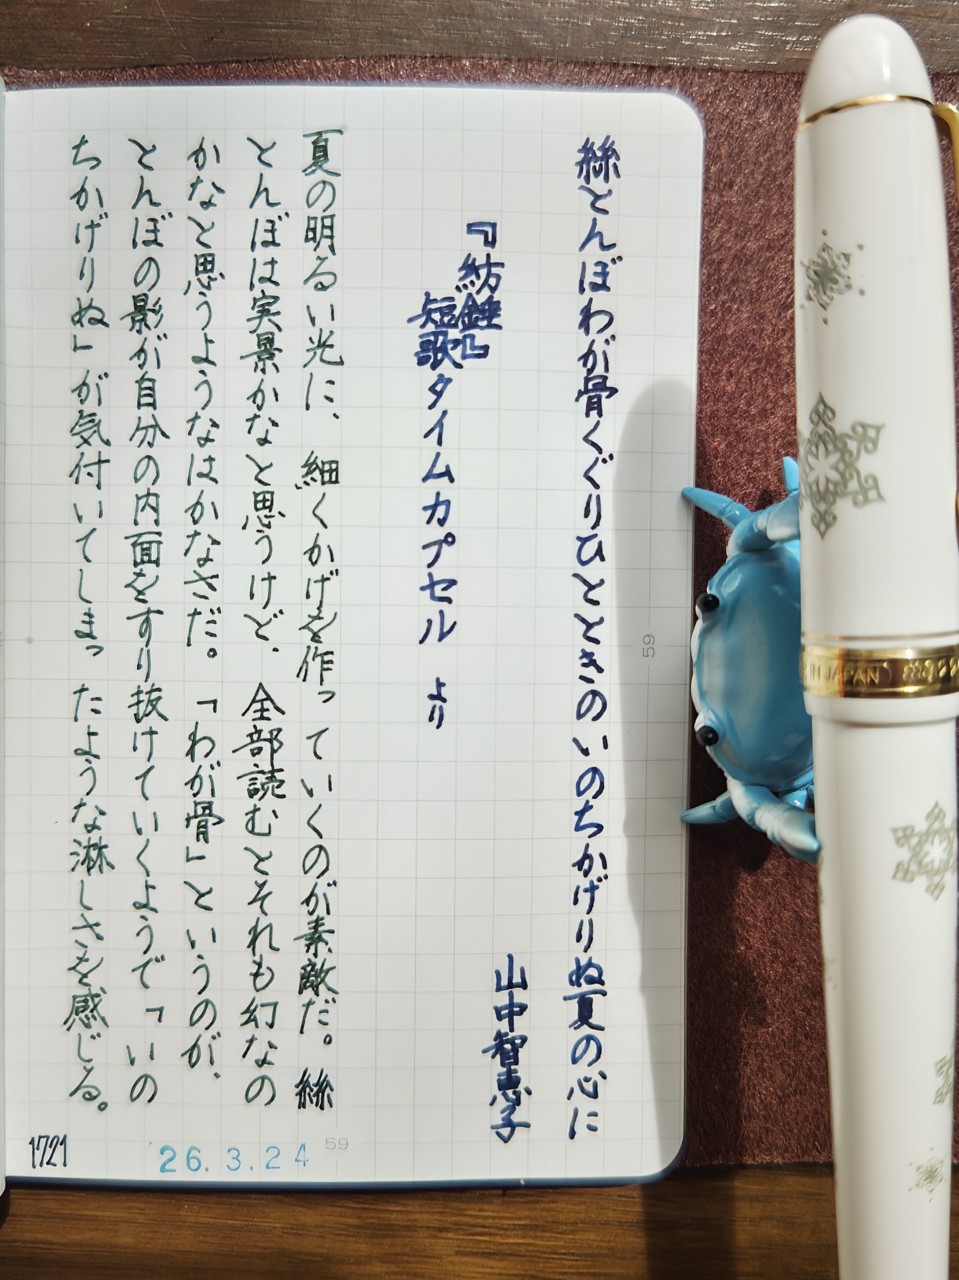 絲とんぼわが骨くぐりひとときのいのちかげりぬ夏の心に
山中智恵子
『紡錘』
短歌タイムカプセル より
夏の明るい光に、細くかげを作っていくのが素敵だ。絲
とんぼは実景かなと思うけど、全部読むとそれも幻なの
かなと思うようなはかなさだ。「わが骨」というのが、
とんぼの影が自分の内面をすり抜けていくようで「いの
ちかげりぬ」が気付いてしまったような淋しさを感じる。
1721
26.3.24
59
59
IN JAPAN